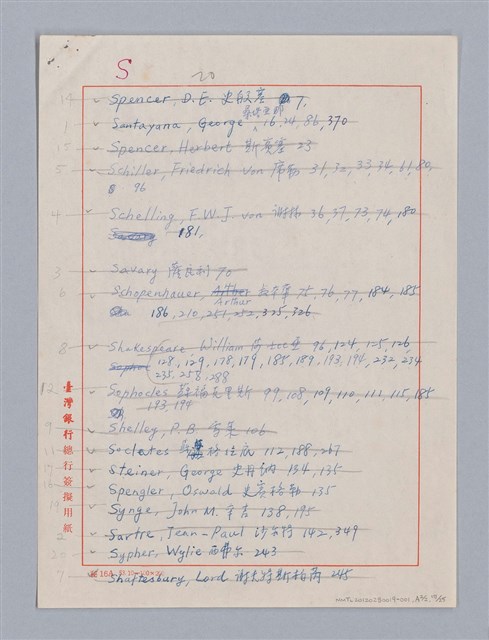 S 20
14 Spencer, D.E. 史伯塞 7,
1 Santayana, George 桑塔耶那 16, 24, 86, 370
15 Spencer, Herbert 斯賓塞 23
5 Schiller, Friedrich von 席勒 31, 32, 33, 34, 61, 80,
96
4 Schelling, F.W.J. von 謝林 36, 37, 73, 74, 180
181,
3 Savary 薩瓦利 70
6 Schopenhauer, Arthur 叔本華 75, 76, 77, 184, 185
186, 210, 251, 252, 325, 326
8 Shakespeare, William 莎士比亞 96, 124, 125, 126
128, 129, 178, 179, 185, 189, 193, 194, 232, 234
235, 258, 288
12 Sophocles 蘇福克里斯 99, 108, 109, 110, 111, 115, 185
193, 194
9 Shelley, P.B. 雪萊 106
11 Socrates 蘇格拉底 112, 188, 267
17 Steiner, George 史丹納 134, 135
16 Spengler, Oswald 史賓格勒 135
19 Synge, John M. 辛吉 138, 195
2 Sartre, Jean-Paul 沙特 142, 349
20 Sypher, Wylie 西弗爾 243
7 Shaftesbury, Lord 謝夫特斯柏爾 245
臺灣銀行總行簽擬用紙